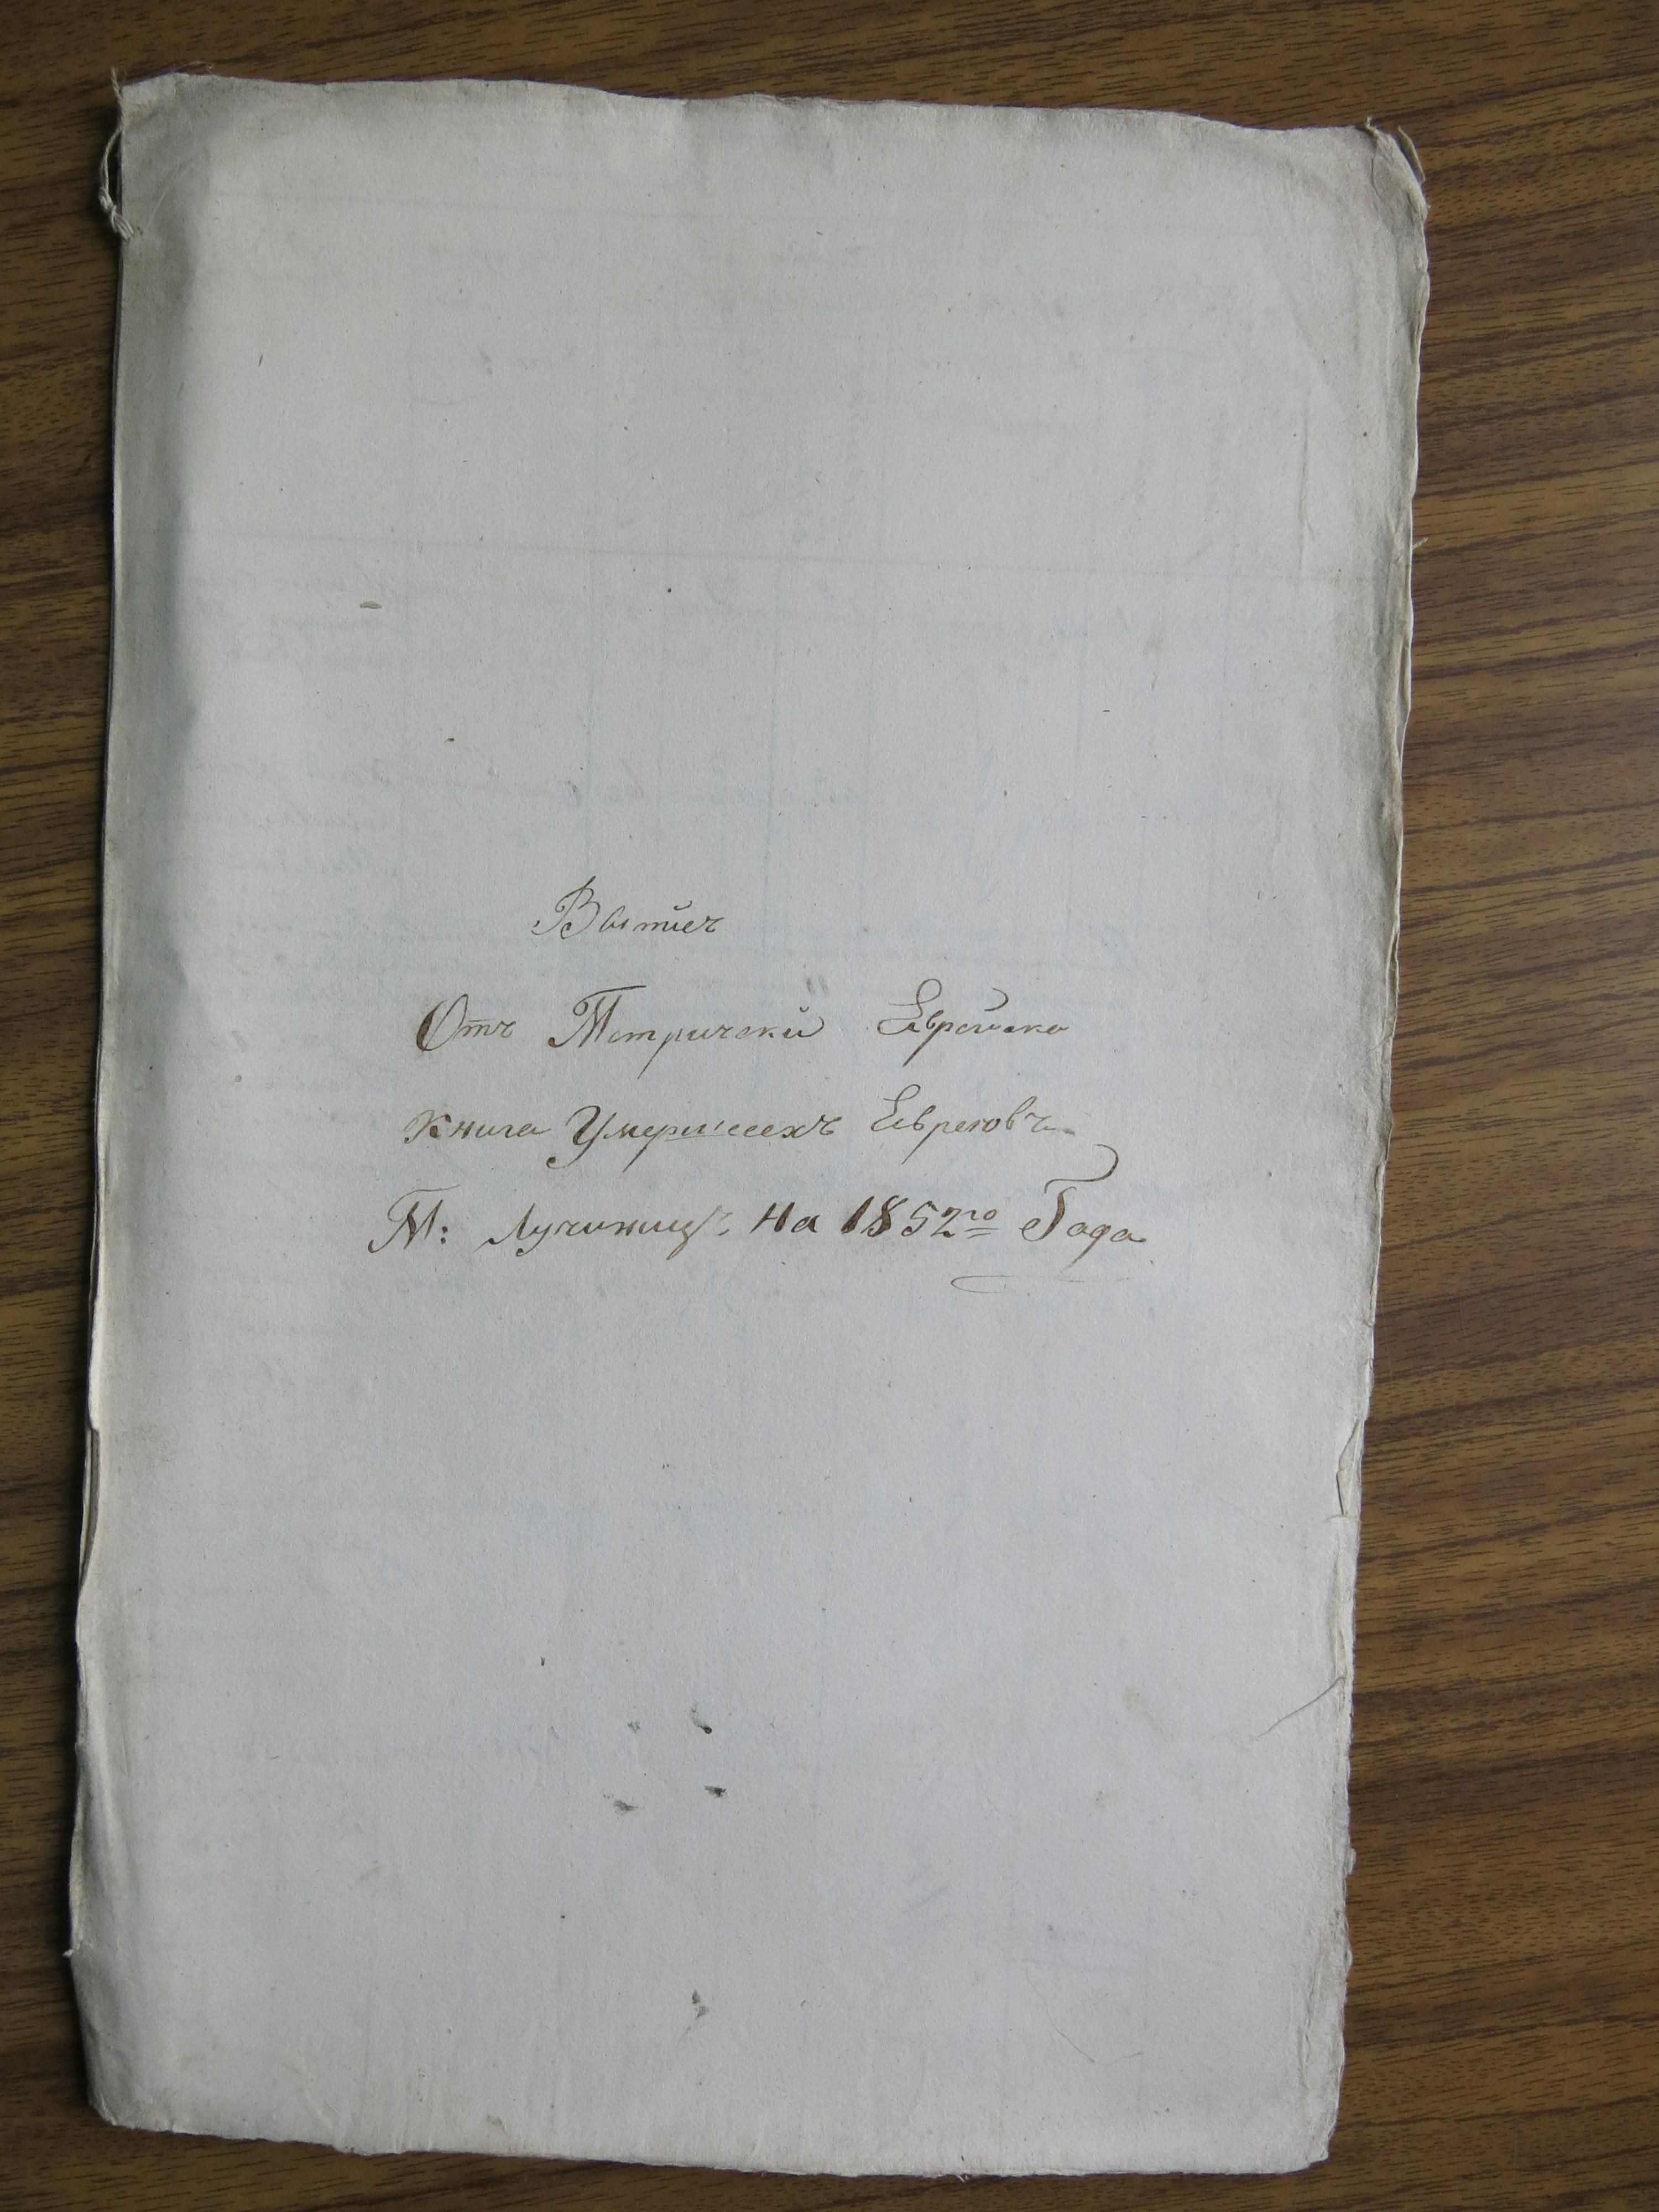 Вытисъ
Отъ Метрически Еврейско
Книга Умершеехъ Евреювъ
М: Лучинецъ На 1852го Года